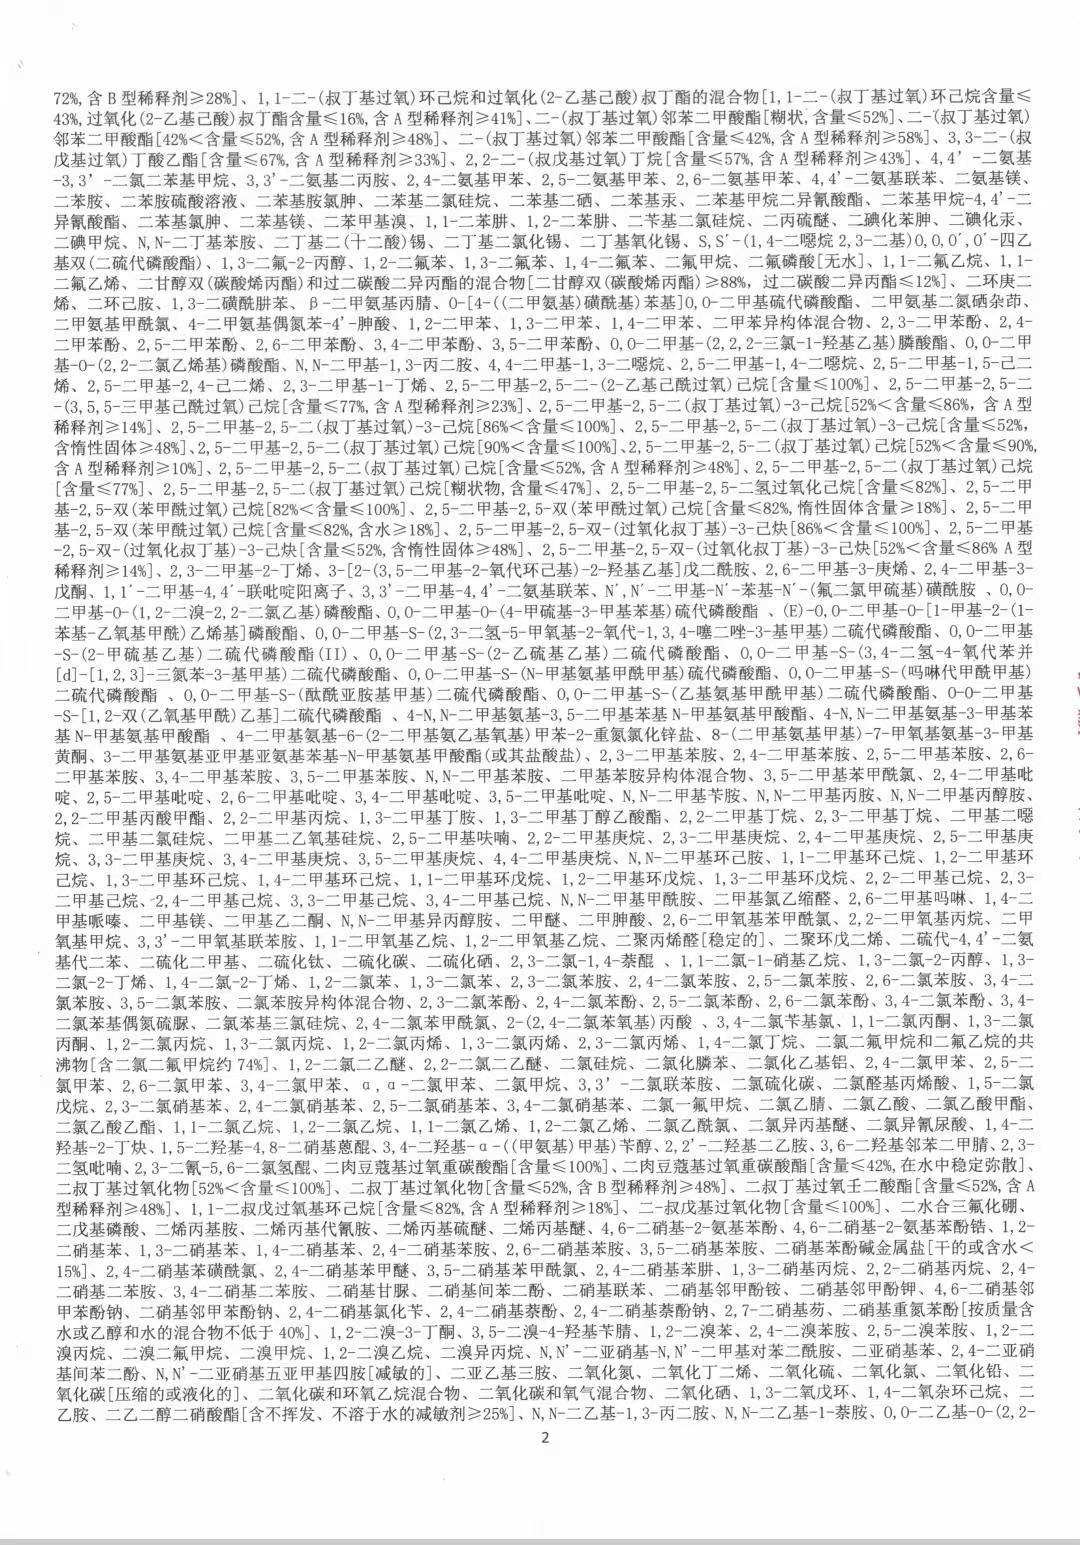 72%,含 B 型稀释剂≥28%]、1,1-二-(叔丁基过氧)环己烷和过氧化(2-乙基己酸)叔丁酯的混合物[1,1-二-(叔丁基过氧)环己烷含量≤
43%,过氧化(2-乙基己酸)叔丁酯含量≤16%,含 A 型稀释剂≥41%]、二-(叔丁基过氧)邻苯二甲酸酯[糊状,含量≤52%]、二-(叔丁基过氧)
邻苯二甲酸酯[42%＜含量≤52%,含 A 型稀释剂≥48%]、二-(叔丁基过氧)邻苯二甲酸酯[含量≤42%,含 A 型稀释剂≥58%]、3,3-二-(叔
戊基过氧)丁酸乙酯[含量≤67%,含 A 型稀释剂≥33%]、2,2-二-(叔戊基过氧)丁烷[含量≤57%,含 A 型稀释剂≥43%]、4,4’-二氨基
-3,3’-二氯二苯基甲烷、3,3'-二氨基二丙胺、2,4-二氨基甲苯、2,5-二氨基甲苯、2,6-二氨基甲苯、4,4'-二氨基联苯、二氨基镁、
二苯胺、二苯胺硫酸溶液、二苯基胺氯胂、二苯基二氯硅烷、二苯基二硒、二苯基汞、二苯基甲烷二异氰酸酯、二苯基甲烷-4,4'-二
异氰酸酯、二苯基氯胂、二苯基镁、二苯甲基溴、1,1-二苯肼、1,2-二苯肼、二苄基二氯硅烷、二丙硫醚、二碘化苯胂、二碘化汞、
二碘甲烷、N,N-二丁基苯胺、二丁基二(十二酸)锡、二丁基二氯化锡、二丁基氧化锡、S,S′-(1,4-二噁烷 2,3-二基)O,O,O′,O′-四乙
基双(二硫代磷酸酯)、1,3-二氟-2-丙醇、1,2-二氟苯、1,3-二氟苯、1,4-二氟苯、二氟甲烷、二氟磷酸[无水]、1,1-二氟乙烷、1,1-
二氟乙烯、二甘醇双(碳酸烯丙酯)和过二碳酸二异丙酯的混合物[二甘醇双(碳酸烯丙酯)≥88%，过二碳酸二异丙酯≤12%]、二环庚二
烯、二环己胺、1,3-二磺酰肼苯、β-二甲氨基丙腈、O-[4-((二甲氨基)磺酰基)苯基]O,O-二甲基硫代磷酸酯、二甲氨基二氮硒杂茚、
二甲氨基甲酰氯、4-二甲氨基偶氮苯-4'-胂酸、1,2-二甲苯、1,3-二甲苯、1,4-二甲苯、二甲苯异构体混合物、2,3-二甲苯酚、2,4-
二甲苯酚、2,5-二甲苯酚、2,6-二甲苯酚、3,4-二甲苯酚、3,5-二甲苯酚、O,O-二甲基-(2,2,2-三氯-1-羟基乙基)膦酸酯、O,O-二甲
基-O-(2,2-二氯乙烯基)磷酸酯、N,N-二甲基-1,3-丙二胺、4,4-二甲基-1,3-二噁烷、2,5-二甲基-1,4-二噁烷、2,5-二甲基-1,5-己二
烯、2,5-二甲基-2,4-己二烯、2,3-二甲基-1-丁烯、2,5-二甲基-2,5-二-(2-乙基己酰过氧)己烷[含量≤100%]、2,5-二甲基-2,5-二
-(3,5,5-三甲基己酰过氧)己烷[含量≤77%,含 A 型稀释剂≥23%]、2,5-二甲基-2,5-二(叔丁基过氧)-3-己烷[52%＜含量≤86%，含 A 型
稀释剂≥14%]、2,5-二甲基-2,5-二(叔丁基过氧)-3-己烷[86%＜含量≤100%]、2,5-二甲基-2,5-二(叔丁基过氧)-3-己烷[含量≤52%，
含惰性固体≥48%]、2,5-二甲基-2,5-二(叔丁基过氧)己烷[90%＜含量≤100%]、2,5-二甲基-2,5-二(叔丁基过氧)己烷[52%＜含量≤90%,
含 A 型稀释剂≥10%]、2,5-二甲基-2,5-二(叔丁基过氧)己烷[含量≤52%,含 A 型稀释剂≥48%]、2,5-二甲基-2,5-二(叔丁基过氧)己烷
[含量≤77%]、2,5-二甲基-2,5-二(叔丁基过氧)己烷[糊状物,含量≤47%]、2,5-二甲基-2,5-二氢过氧化己烷[含量≤82%]、2,5-二甲
基-2,5-双(苯甲酰过氧)己烷[82%＜含量≤100%]、2,5-二甲基-2,5-双(苯甲酰过氧)己烷[含量≤82%,惰性固体含量≥18%]、2,5-二甲
基-2,5-双(苯甲酰过氧)己烷[含量≤82%,含水≥18%]、2,5-二甲基-2,5-双-(过氧化叔丁基)-3-己炔[86%＜含量≤100%]、2,5-二甲基
-2,5-双-(过氧化叔丁基)-3-己炔[含量≤52%,含惰性固体≥48%]、2,5-二甲基-2,5-双-(过氧化叔丁基)-3-己炔[52%＜含量≤86% A 型
稀释剂≥14%]、2,3-二甲基-2-丁烯、3-[2-(3,5-二甲基-2-氧代环己基)-2-羟基乙基]戊二酰胺、2,6-二甲基-3-庚烯、2,4-二甲基-3-
戊酮、1,1′-二甲基-4,4′-联吡啶阳离子、3,3'-二甲基-4,4'-二氨基联苯、N′,N′-二甲基-N′-苯基-N′-(氟二氯甲硫基)磺酰胺 、O,O-
二甲基-O-(1,2-二溴-2,2-二氯乙基)磷酸酯、O,O-二甲基-O-(4-甲硫基-3-甲基苯基)硫代磷酸酯 、(E)-O,O-二甲基-O-[1-甲基-2-(1-
苯基-乙氧基甲酰)乙烯基]磷酸酯、O,O-二甲基-S-(2,3-二氢-5-甲氧基-2-氧代-1,3,4-噻二唑-3-基甲基)二硫代磷酸酯、O,O-二甲基
-S-(2-甲硫基乙基)二硫代磷酸酯(II)、O,O-二甲基-S-(2-乙硫基乙基)二硫代磷酸酯、O,O-二甲基-S-(3,4-二氢-4-氧代苯并
[d]-[1,2,3]-三氮苯-3-基甲基)二硫代磷酸酯、O,O-二甲基-S-(N-甲基氨基甲酰甲基)硫代磷酸酯、O,O-二甲基-S-(吗啉代甲酰甲基)
二硫代磷酸酯 、O,O-二甲基-S-(酞酰亚胺基甲基)二硫代磷酸酯、O,O-二甲基-S-(乙基氨基甲酰甲基)二硫代磷酸酯、O-O-二甲基
-S-[1,2-双(乙氧基甲酰)乙基]二硫代磷酸酯 、4-N,N-二甲基氨基-3,5-二甲基苯基 N-甲基氨基甲酸酯、4-N,N-二甲基氨基-3-甲基苯
基 N-甲基氨基甲酸酯 、4-二甲基氨基-6-(2-二甲基氨乙基氧基)甲苯-2-重氮氯化锌盐、8-(二甲基氨基甲基)-7-甲氧基氨基-3-甲基
黄酮、3-二甲基氨基亚甲基亚氨基苯基-N-甲基氨基甲酸酯(或其盐酸盐)、2,3-二甲基苯胺、2,4-二甲基苯胺、2,5-二甲基苯胺、2,6-
二甲基苯胺、3,4-二甲基苯胺、3,5-二甲基苯胺、N,N-二甲基苯胺、二甲基苯胺异构体混合物、3,5-二甲基苯甲酰氯、2,4-二甲基吡
啶、2,5-二甲基吡啶、2,6-二甲基吡啶、3,4-二甲基吡啶、3,5-二甲基吡啶、N,N-二甲基苄胺、N,N-二甲基丙胺、N,N-二甲基丙醇胺、
2,2-二甲基丙酸甲酯、2,2-二甲基丙烷、1,3-二甲基丁胺、1,3-二甲基丁醇乙酸酯、2,2-二甲基丁烷、2,3-二甲基丁烷、二甲基二噁
烷、二甲基二氯硅烷、二甲基二乙氧基硅烷、2,5-二甲基呋喃、2,2-二甲基庚烷、2,3-二甲基庚烷、2,4-二甲基庚烷、2,5-二甲基庚
烷、3,3-二甲基庚烷、3,4-二甲基庚烷、3,5-二甲基庚烷、4,4-二甲基庚烷、N,N-二甲基环己胺、1,1-二甲基环己烷、1,2-二甲基环
己烷、1,3-二甲基环己烷、1,4-二甲基环己烷、1,1-二甲基环戊烷、1,2-二甲基环戊烷、1,3-二甲基环戊烷、2,2-二甲基己烷、2,3-
二甲基己烷、2,4-二甲基己烷、3,3-二甲基己烷、3,4-二甲基己烷、N,N-二甲基甲酰胺、二甲基氯乙缩醛、2,6-二甲基吗啉、1,4-二
甲基哌嗪、二甲基镁、二甲基乙二酮、N,N-二甲基异丙醇胺、二甲醚、二甲胂酸、2,6-二甲氧基苯甲酰氯、2,2-二甲氧基丙烷、二甲
氧基甲烷、3,3'-二甲氧基联苯胺、1,1-二甲氧基乙烷、1,2-二甲氧基乙烷、二聚丙烯醛[稳定的]、二聚环戊二烯、二硫代-4,4'-二氨
基代二苯、二硫化二甲基、二硫化钛、二硫化碳、二硫化硒、2,3-二氯-1,4-萘醌 、1,1-二氯-1-硝基乙烷、1,3-二氯-2-丙醇、1,3-
二氯-2-丁烯、1,4-二氯-2-丁烯、1,2-二氯苯、1,3-二氯苯、2,3-二氯苯胺、2,4-二氯苯胺、2,5-二氯苯胺、2,6-二氯苯胺、3,4-二
氯苯胺、3,5-二氯苯胺、二氯苯胺异构体混合物、2,3-二氯苯酚、2,4-二氯苯酚、2,5-二氯苯酚、2,6-二氯苯酚、3,4-二氯苯酚、3,4-
二氯苯基偶氮硫脲、二氯苯基三氯硅烷、2,4-二氯苯甲酰氯、2-(2,4-二氯苯氧基)丙酸 、3,4-二氯苄基氯、1,1-二氯丙酮、1,3-二氯
丙酮、1,2-二氯丙烷、1,3-二氯丙烷、1,2-二氯丙烯、1,3-二氯丙烯、2,3-二氯丙烯、1,4-二氯丁烷、二氯二氟甲烷和二氟乙烷的共
沸物[含二氯二氟甲烷约 74%]、1,2-二氯二乙醚、2,2-二氯二乙醚、二氯硅烷、二氯化膦苯、二氯化乙基铝、2,4-二氯甲苯、2,5-二
氯甲苯、2,6-二氯甲苯、3,4-二氯甲苯、α,α-二氯甲苯、二氯甲烷、3,3’-二氯联苯胺、二氯硫化碳、二氯醛基丙烯酸、1,5-二氯
戊烷、2,3-二氯硝基苯、2,4-二氯硝基苯、2,5-二氯硝基苯、3,4-二氯硝基苯、二氯一氟甲烷、二氯乙腈、二氯乙酸、二氯乙酸甲酯、
二氯乙酸乙酯、1,1-二氯乙烷、1,2-二氯乙烷、1,1-二氯乙烯、1,2-二氯乙烯、二氯乙酰氯、二氯异丙基醚、二氯异氰尿酸、1,4-二
羟基-2-丁炔、1,5-二羟基-4,8-二硝基蒽醌、3,4-二羟基-α-((甲氨基)甲基)苄醇、2,2'-二羟基二乙胺、3,6-二羟基邻苯二甲腈、2,3-
二氢吡喃、2,3-二氰-5,6-二氯氢醌、二肉豆蔻基过氧重碳酸酯[含量≤100%]、二肉豆蔻基过氧重碳酸酯[含量≤42%,在水中稳定弥散]、
二叔丁基过氧化物[52%＜含量≤100%]、二叔丁基过氧化物[含量≤52%,含 B 型稀释剂≥48%]、二叔丁基过氧壬二酸酯[含量≤52%,含 A
型稀释剂≥48%]、1,1-二叔戊基过氧基环己烷[含量≤82%,含 A 型稀释剂≥18%]、二-叔戊基过氧化物[含量≤100%]、二水合三氟化硼、
二戊基磷酸、二烯丙基胺、二烯丙基代氰胺、二烯丙基硫醚、二烯丙基醚、4,6-二硝基-2-氨基苯酚、4,6-二硝基-2-氨基苯酚锆、1,2-
二硝基苯、1,3-二硝基苯、1,4-二硝基苯、2,4-二硝基苯胺、2,6-二硝基苯胺、3,5-二硝基苯胺、二硝基苯酚碱金属盐[干的或含水＜
15%]、2,4-二硝基苯磺酰氯、2,4-二硝基苯甲醚、3,5-二硝基苯甲酰氯、2,4-二硝基苯肼、1,3-二硝基丙烷、2,2-二硝基丙烷、2,4-
二硝基二苯胺、3,4-二硝基二苯胺、二硝基甘脲、二硝基间苯二酚、二硝基联苯、二硝基邻甲酚铵、二硝基邻甲酚钾、4,6-二硝基邻
甲苯酚钠、二硝基邻甲苯酚钠、2,4-二硝基氯化苄、2,4-二硝基萘酚、2,4-二硝基萘酚钠、2,7-二硝基芴、二硝基重氮苯酚[按质量含
水或乙醇和水的混合物不低于 40%]、1,2-二溴-3-丁酮、3,5-二溴-4-羟基苄腈、1,2-二溴苯、2,4-二溴苯胺、2,5-二溴苯胺、1,2-二
溴丙烷、二溴二氟甲烷、二溴甲烷、1,2-二溴乙烷、二溴异丙烷、N,N'-二亚硝基-N,N'-二甲基对苯二酰胺、二亚硝基苯、2,4-二亚硝
基间苯二酚、N,N'-二亚硝基五亚甲基四胺[减敏的]、二亚乙基三胺、二氧化氮、二氧化丁二烯、二氧化硫、二氧化氯、二氧化铅、二
氧化碳[压缩的或液化的]、二氧化碳和环氧乙烷混合物、二氧化碳和氧气混合物、二氧化硒、1,3-二氧戊环、1,4-二氧杂环己烷、二
乙胺、二乙二醇二硝酸酯[含不挥发、不溶于水的减敏剂≥25%]、N,N-二乙基-1,3-丙二胺、N,N-二乙基-1-萘胺、O,O-二乙基-O-(2,2-
2